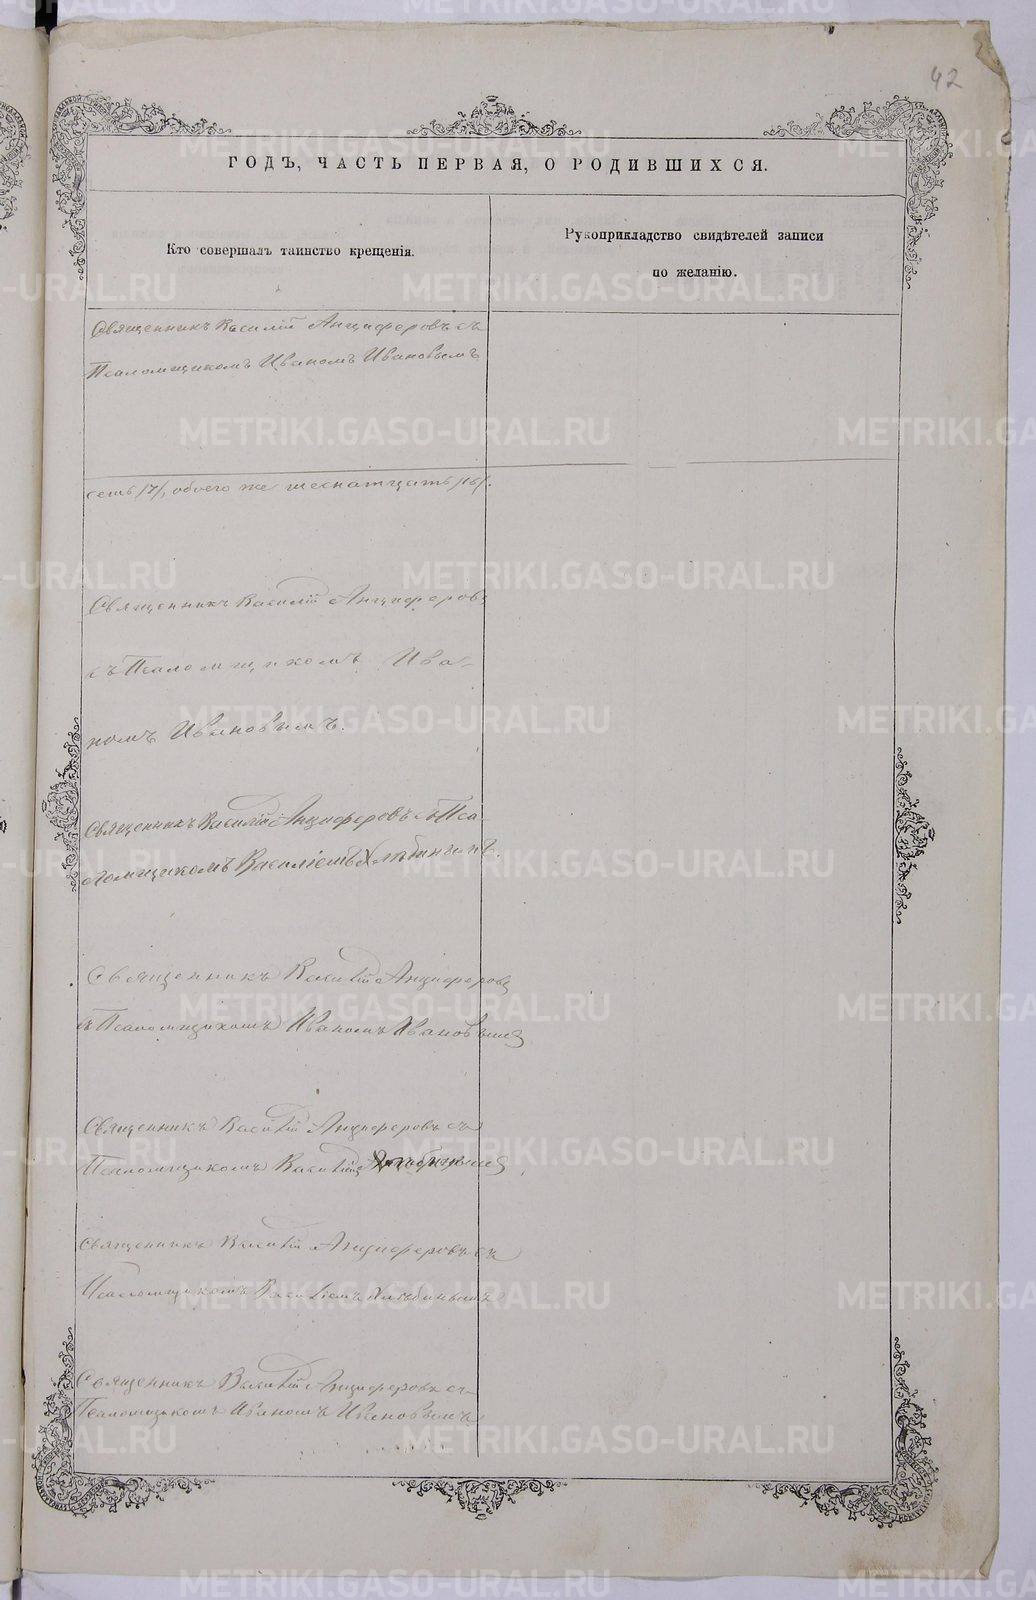 42
ГОДЪ, ЧАСТЬ ПЕРВАЯ, О РОДИВШИХСЯ.
Кто совершалъ таинство крещенія.
Рукоприкладство свидѣтелей записи
по желанію.
Священникъ Василій Анциферовъ съ
Псаломщикомъ Иваномъ Ивановымъ
семь /7/, обоего же шеснатцать /16/.
Священникъ Василій Анциферовъ
съ Псаломщикомъ Ива-
номъ Ивановымъ.
Священникъ Василій Анциферовъ съ Пса-
ломщикомъ Василіемъ Хлѣбинымъ.
Священникъ Василій Анциферовъ
съ Псаломщикомъ Иваномъ Ивановымъ
Священникъ Василій Анциферовъ съ
Псаломщикомъ Василіемъ Хлѣбинымъ
Священникъ Василій Анциферовъ съ
Псаломщикомъ Василіемъ Хлѣбинымъ
Священникъ Василій Анциферовъ съ
Псаломщикомъ Иваномъ Ивановымъ
METRIKI.GASO-URAL.RU